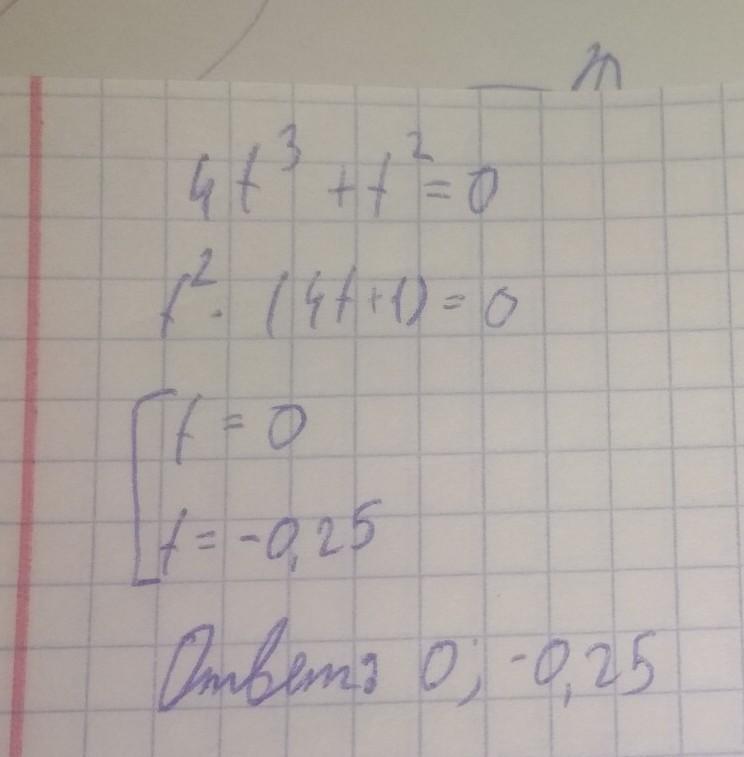 m
4t³ + t² = 0
t² · (4t+1) = 0
t = 0
t = -0,25
Ответ: 0; -0,25